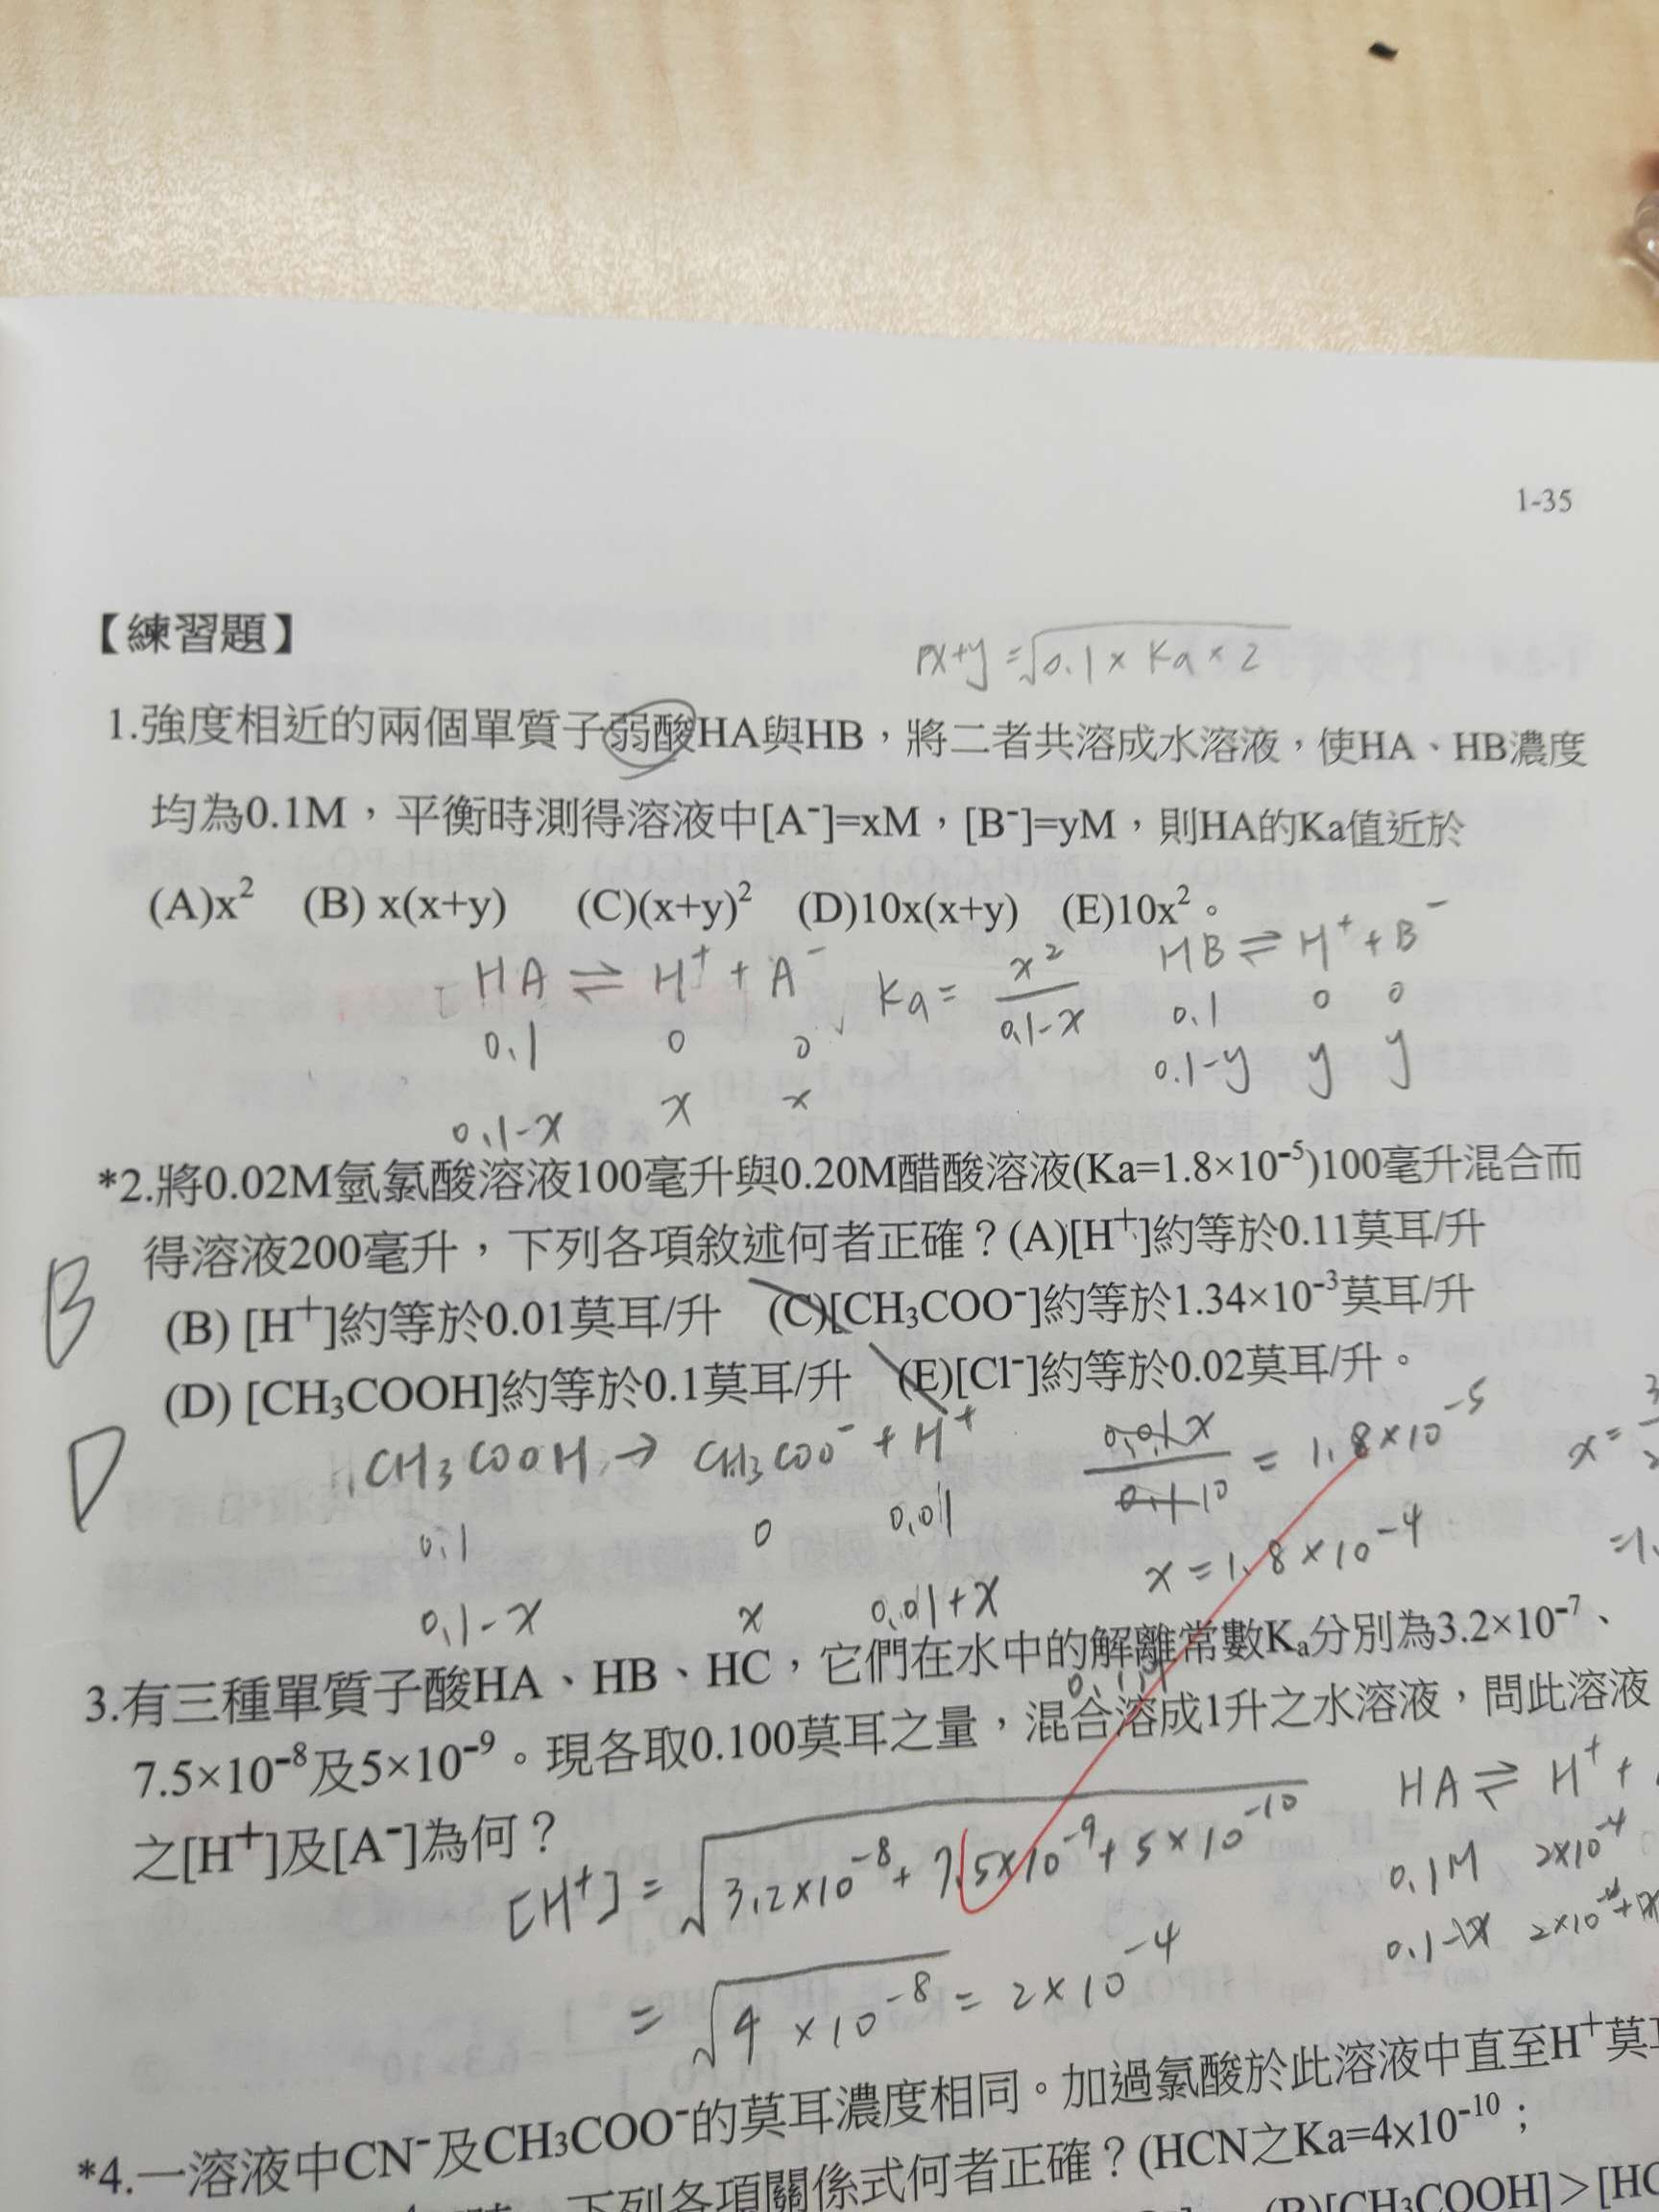 1-35
【練習題】
x+y=√0.1×Ka×2
1.強度相近的兩個單質子弱酸HA與HB，將二者共溶成水溶液，使HA、HB濃度
均為0.1M，平衡時測得溶液中[A⁻]=xM，[B⁻]=yM，則HA的Ka值近於
(A)x² (B) x(x+y) (C)(x+y)² (D)10x(x+y) (E)10x²。
HA ⇌ H⁺ + A⁻ Ka = x²/0.1-x HB ⇌ H⁺ + B⁻
0.1 0 0 0.1 0 0
0.1-x x x 0.1-y y y
*2.將0.02M氫氯酸溶液100毫升與0.20M醋酸溶液(Ka=1.8×10⁻⁵)100毫升混合而
得溶液200毫升，下列各項敘述何者正確？(A)[H⁺]約等於0.11莫耳/升
B
(B) [H⁺]約等於0.01莫耳/升 (C)[CH₃COO⁻]約等於1.34×10⁻³莫耳/升
(D) [CH₃COOH]約等於0.1莫耳/升 (E)[Cl⁻]約等於0.02莫耳/升。
D
CH₃COOH → CH₃COO⁻ + H⁺ 0.01x/0.1 10 = 1.8×10⁻⁵ x=
0.1 0 0.01 x = 1.8×10⁻⁴ =1.
0.1-x x 0.01+x
3.有三種單質子酸HA、HB、HC，它們在水中的解離常數Kₐ分別為3.2×10⁻⁷、
7.5×10⁻⁸及5×10⁻⁹。現各取0.100莫耳之量，混合溶成1升之水溶液，問此溶液
之[H⁺]及[A⁻]為何？
HA ⇌ H⁺ +
[H⁺] = √3.2×10⁻⁸+7.5×10⁻⁹+5×10⁻¹⁰
0.1M 2×10⁻⁴
0.1-x 2×10⁻⁴+x
= √4×10⁻⁸ = 2×10⁻⁴
*4.一溶液中CN⁻及CH₃COO⁻的莫耳濃度相同。加過氯酸於此溶液中直至H⁺莫
下列各項關係式何者正確？(HCN之Ka=4×10⁻¹⁰；
(B)[CH₃COOH]＞[HC